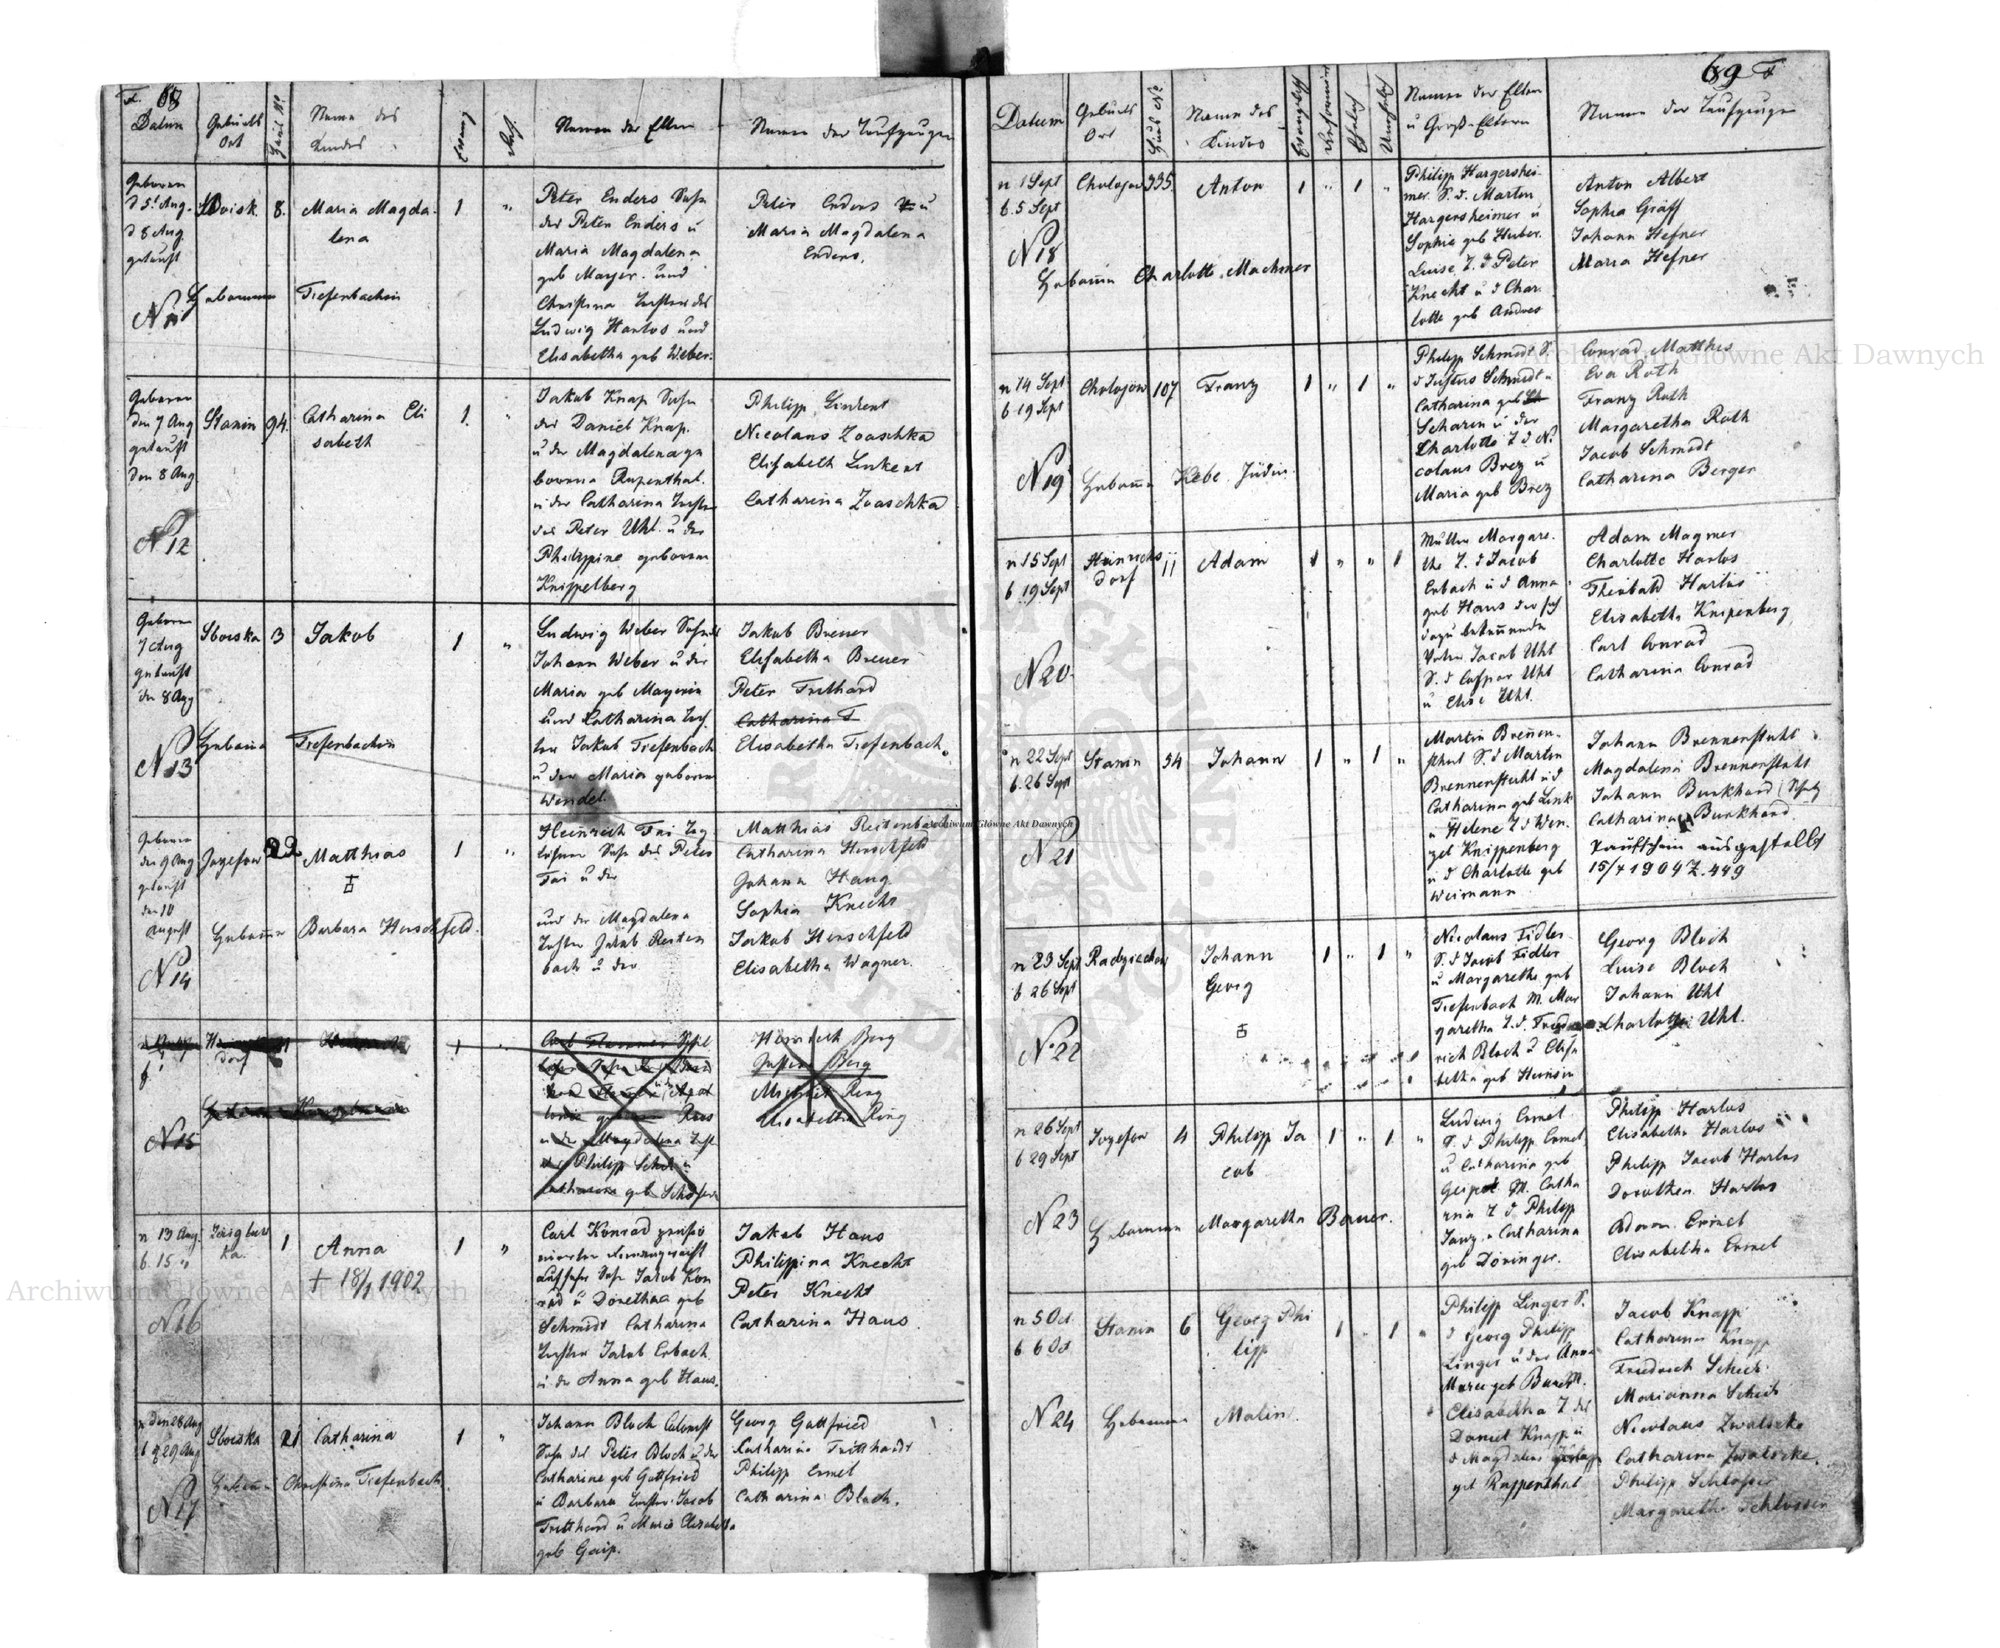 68
Datum
Geburts
Ort
Haus No
Name des
Kindes
Namen der Eltern
Namen der Taufzeugen
Geboren
d 5t Aug.
d 8 Aug
getauft
8.
Maria Magda-
lena
1
"
Peter Enders Sohn
des Peter Enders u
Maria Magdalena
geb Mayer. und
Christina Tochter des
Ludwig Harlos und
Elisabetha geb Weber.
Peter Enders u
Maria Magdalena
Enders.
N 11
Hebamme Tiefenbachin
Geboren
den 7 Aug
getauft
den 8 Aug
Stanin
94.
Catharina Eli
sabeth
1.
"
Jakob Knap Sohn
des Daniel Knap.
u der Magdalena ge
borene Rupenthal.
u der Catharina Tochter
des Peter Uhl. u der
Philippine geboren
Knippelberg
Philipp Linkert
Nicolaus Zoaschka
Elisabeth Linkert
Catharina Zoaschka
N 12
Geboren
7 Aug
getauft
den 8 Aug
Stoiska
3
Jakob
1
"
Ludwig Weber Sohn des
Johann Weber u der
Maria geb Mayerin
und Catharina Toch
ter Jakob Tiefenbach
u der Maria geboren
Wendel.
Jakob Breuer
Elisabetha Breuer
Peter Tritthard
Catharina T
Elisabetha Tiefenbach.
N 13
Hebamme Tiefenbachin
Geboren
den 9 Aug
getauft
den 10
August
Jozefow
22
Matthias
1
"
Heinrich Fai Tag
löhner Sohn des Peter
Fai u der
und der Magdalena
Tochter Jakob Reiten
bach u der
Matthias Reitenbach
Catharina Herschfeld
Johann Haug
Sophia Knecht
Jakob Herschfeld
Elisabetha Wagner.
Hebamme Barbara Herschfeld.
N 14
dorf
1
"
Heinrich Berg
Berg
Michael Ring
Elisabetha Ring
N 15
n 13 Aug.
b. 15 "
1
Anna
+ 18/1 1902
1
"
Carl Konrad
Sohn Jakob Kon
rad u Dorethea geb
Schmidt Catharina
Tochter Jakob Erbach
u der Anna geb Haus.
Jakob Haus
Philippina Knecht
Peter Knecht
Catharina Haus.
N 16
n den 28 Aug
b d 29 Aug
Stoiska
21
Catharina
1
"
Johann Bloch Colonist
Sohn des Peter Bloch u der
Catharine geb Gottfried
u Barbara Tochter Jacob
Tritthard u Maria Elisabetha
geb Gaip.
Georg Gottfried
Catharina Tritthardt
Philipp Ermel
Catharina Bloch.
Hebamme Christina Tiefenbach.
N 17
69
Datum
Geburts
Ort
Haus No
Name des
Kindes
Evangelisch
Reformirt
Ehelich
Unehelich
Namen der Eltern
u Groß-Eltern
Namen der Taufzeugen
n 1 Sept
b. 5 Sept
Cholojow
335.
Anton
1
"
1
"
Philipp Hargershei-
mer. S. d. Martin
Hargersheimer u
Sophie geb Huber.
Luise T. d Peter
Knecht u d Char-
lotte geb Andres
Anton Albert
Sophia Gräff
Johann Hefner
Maria Hefner
N 18
Hebamme Charlotte Machmer
n 14 Sept
b 19 Sept
Cholojow
107
Franz
1
"
1
"
Philipp Schmidt S.
d Justus Schmidt u
Catharina geb
Scharin u der
Charlotte T d Ni
colaus Brez u
Maria geb Brez
Conrad Matthes
Eva Roth
Franz Roth
Margaretha Roth
Jacob Schmidt
Catharina Berger
N 19
Hebamme Kebe Jüdin.
n 15 Sept
b 19 Sept
Heinrichs
dorf
11
Adam
1
"
"
1
Mutter Margare-
the T. d Jacob
Erbach u d Anna
geb Haus der sich
dazu bekennende
Vater Jacob Uhl
S. d Caspar Uhl
u Elise Uhl.
Adam Magmer
Charlotte Harlos
Theobald Harlos
Elisabetha Knipenberg
Carl Conrad
Catharina Conrad
N 20.
n 22 Sept
b. 26 Sept
Stanin
54
Johann
1
"
1
"
Martin Brennen-
stuhl S. d Martin
Brennenstuhl u d
Catharina geb Link
u Helene T d Wen-
zel Knippenberg
u d Charlotte geb
Weimann
Johann Brennenstuhl
Magdalena Brennenstuhl
Johann Burkhard
Catharina Burkhard.
Taufschein ausgestellt
15/4 1904 Z. 449
N 21
n 23 Sept
b 26 Sept
Radziechow
Johann
Georg
1
"
1
"
Nicolaus Fidler
S. d Jacob Fidler
u Margarethe geb
Tiefenbach M. Mar
garetha T. d. Fried
rich Bloch u Elisa
betha geb Heinsin
Georg Bloch
Luise Bloch
Johann Uhl
Charlotte Uhl.
N 22
n 26 Sept
b 29 Sept
Jozefow
4
Philipp Ja
cob
1
"
1
"
Ludwig Ermel
S. d Philipp Ermel
u Catharina geb
M. Catha
rina T d Philipp
Janz u Catharina
geb Döringer.
Philipp Harlos
Elisabetha Harlos
Philipp Jacob Harlos
Dorothea Harlos
Adam Ermel
Elisabetha Ermel
N 23
Hebamme Margaretha Berner.
n 5 Oct.
b 6 Oct
Stanin
6
Georg Phi
lipp
1
"
1
"
Philipp Linger S.
d Georg Philipp
Linger u der Anna
Marie geb
Elisabetha T des
Daniel Knapp u
d Magdalena
geb Ruppenthal
Jacob Knapp
Catharina Knapp
Friedrich Scheck
Marianna Scheck
Nicolaus Zwalscke
Catharina Zwalscke.
Philipp Schlosser
Margaretha Schlosser
N 24
Hebamme Malin.
Archiwum Główne Akt Dawnych
Archiwum Główne Akt Dawnych
Archiwum Główne Akt Dawnych